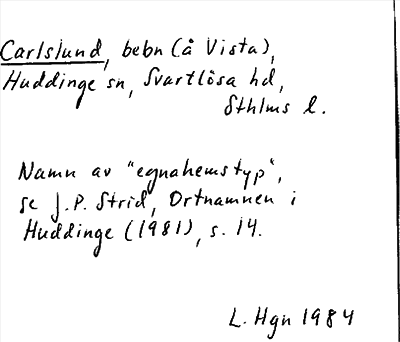 Carlslund, bebn (å Vista),
Huddinge sn, Svartlösa hd,
Sthlms l.
Namn av "egnahemstyp",
se J.P. Strid, Ortnamnen i
Huddinge (1981), s. 14.
L. Hgn 1984